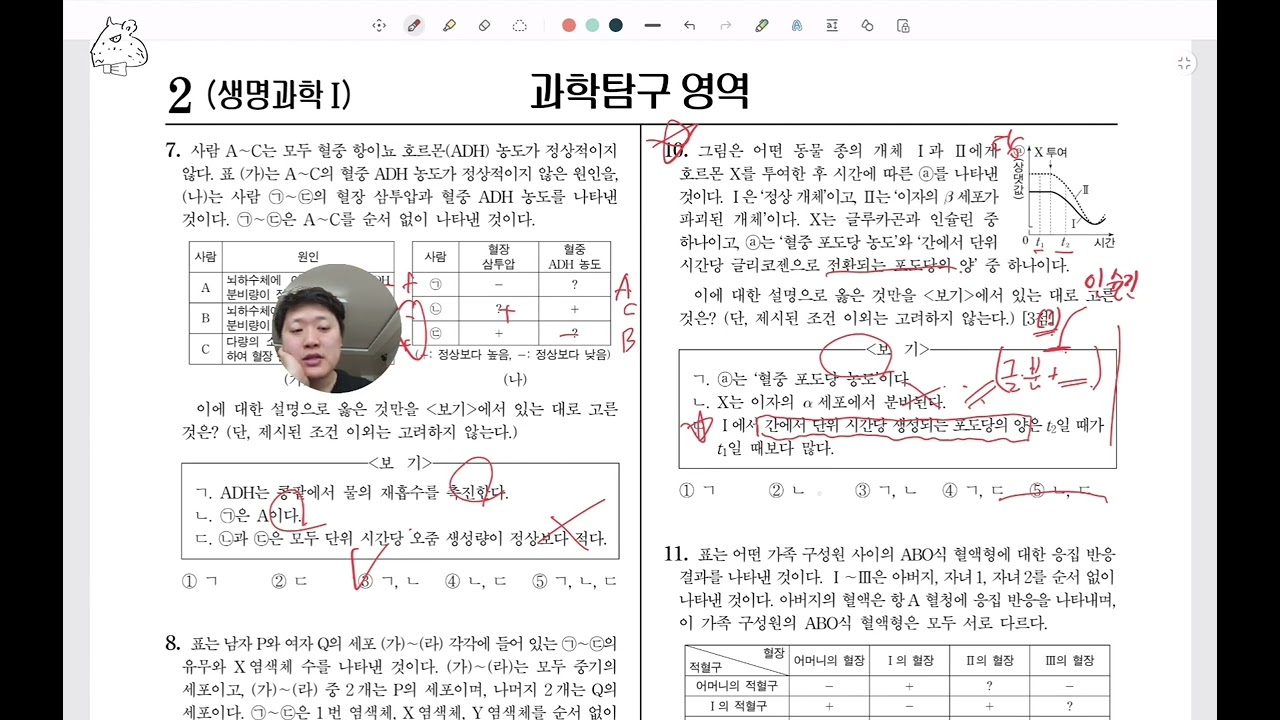 2 (생명과학 I)
과학탐구 영역
7. 사람 A~C는 모두 혈중 항이뇨 호르몬(ADH) 농도가 정상적이지
않다. 표 (가)는 A~C의 혈중 ADH 농도가 정상적이지 않은 원인을,
(나)는 사람 ㉠~㉢의 혈장 삼투압과 혈중 ADH 농도를 나타낸
것이다. ㉠~㉢은 A~C를 순서 없이 나타낸 것이다.
사람 원인
A 뇌하수체에
분비량이
B 뇌하수체에
분비량이
C 다량의 소
하여 혈장
사람 혈장 삼투압 혈중 ADH 농도
㉠ - ? A
㉡ ? + + C
㉢ + ? - B
: 정상보다 높음, -: 정상보다 낮음)
(나)
이에 대한 설명으로 옳은 것만을 <보기>에서 있는 대로 고른
것은? (단, 제시된 조건 이외는 고려하지 않는다.)
<보 기>
ㄱ. ADH는 콩팥에서 물의 재흡수를 촉진한다.
ㄴ. ㉠은 A이다.
ㄷ. ㉡과 ㉢은 모두 단위 시간당 오줌 생성량이 정상보다 적다.
① ㄱ ② ㄷ ③ ㄱ, ㄴ ④ ㄴ, ㄷ ⑤ ㄱ, ㄴ, ㄷ
8. 표는 남자 P와 여자 Q의 세포 (가)~(라) 각각에 들어 있는 ㉠~㉢의
유무와 X 염색체 수를 나타낸 것이다. (가)~(라)는 모두 중기의
세포이고, (가)~(라) 중 2개는 P의 세포이며, 나머지 2개는 Q의
세포이다. ㉠~㉢은 1번 염색체, X 염색체, Y 염색체를 순서 없이
10. 그림은 어떤 동물 종의 개체 Ⅰ과 Ⅱ에게
호르몬 X를 투여한 후 시간에 따른 ⓐ를 나타낸
것이다. Ⅰ은 '정상 개체'이고, Ⅱ는 '이자의 β 세포가
파괴된 개체'이다. X는 글루카곤과 인슐린 중
하나이고, ⓐ는 '혈중 포도당 농도'와 '간에서 단위
시간당 글리코젠으로 전환되는 포도당의 양' 중 하나이다.
X 투여
상댓값)
Ⅱ
Ⅰ
0 t₁ t₂ 시간
이에 대한 설명으로 옳은 것만을 <보기>에서 있는 대로 고른
것은? (단, 제시된 조건 이외는 고려하지 않는다.) [3점]
<보 기>
ㄱ. ⓐ는 '혈중 포도당 농도'이다.
ㄴ. X는 이자의 α 세포에서 분비된다.
Ⅰ에서 간에서 단위 시간당 생성되는 포도당의 양은 t₂일 때가
t₁일 때보다 많다.
① ㄱ ② ㄴ ③ ㄱ, ㄴ ④ ㄱ, ㄷ ⑤ ㄴ, ㄷ
11. 표는 어떤 가족 구성원 사이의 ABO식 혈액형에 대한 응집 반응
결과를 나타낸 것이다. Ⅰ~Ⅲ은 아버지, 자녀 1, 자녀 2를 순서 없이
나타낸 것이다. 아버지의 혈액은 항 A 혈청에 응집 반응을 나타내며,
이 가족 구성원의 ABO식 혈액형은 모두 서로 다르다.
적혈구 혈장 어머니의 혈장 Ⅰ의 혈장 Ⅱ의 혈장 Ⅲ의 혈장
어머니의 적혈구 - + ? -
Ⅰ의 적혈구 + - + ?